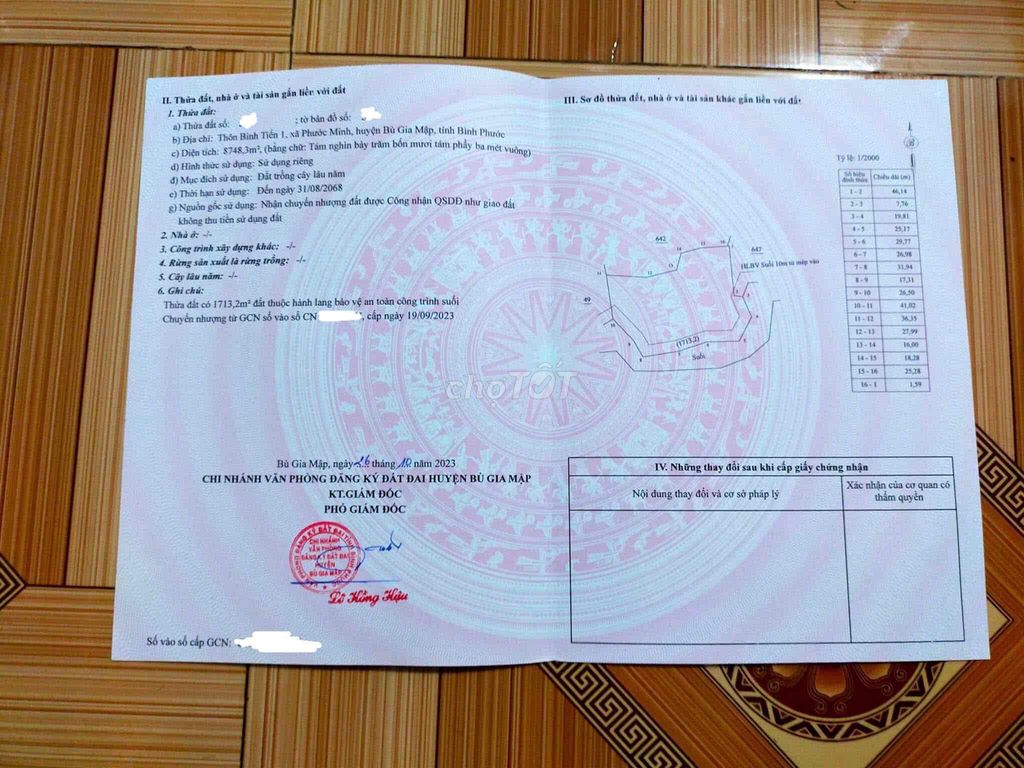 II. Thửa đất, nhà ở và tài sản gắn liền với đất
1. Thửa đất:
a) Thửa đất số: ; tờ bản đồ số:
b) Địa chỉ: Thôn Bình Tiến 1, xã Phước Minh, huyện Bù Gia Mập, tỉnh Bình Phước
c) Diện tích: 8748,3m², (bằng chữ: Tám nghìn bảy trăm bốn mươi tám phẩy ba mét vuông)
d) Hình thức sử dụng: Sử dụng riêng
đ) Mục đích sử dụng: Đất trồng cây lâu năm
e) Thời hạn sử dụng: Đến ngày 31/08/2068
g) Nguồn gốc sử dụng: Nhận chuyển nhượng đất được Công nhận QSDĐ như giao đất
không thu tiền sử dụng đất
2. Nhà ở: -/-
3. Công trình xây dựng khác: -/-
4. Rừng sản xuất là rừng trồng: -/-
5. Cây lâu năm: -/-
6. Ghi chú:
Thửa đất có 1713,2m² đất thuộc hành lang bảo vệ an toàn công trình suối
Chuyển nhượng từ GCN số vào sổ CN , cấp ngày 19/09/2023
Bù Gia Mập, ngày 26 tháng 10 năm 2023
CHI NHÁNH VĂN PHÒNG ĐĂNG KÝ ĐẤT ĐAI HUYỆN BÙ GIA MẬP
KT.GIÁM ĐỐC
PHÓ GIÁM ĐỐC
CHI NHÁNH
VĂN PHÒNG
ĐĂNG KÝ ĐẤT ĐAI
HUYỆN
BÙ GIA MẬP
Lê Hồng Hiệu
Số vào sổ cấp GCN:
III. Sơ đồ thửa đất, nhà ở và tài sản khác gắn liền với đất
Tỷ lệ: 1/2000
Số hiệu đỉnh thửa Chiều dài (m)
1 - 2 46,14
2 - 3 7,76
3 - 4 19,81
4 - 5 25,17
5 - 6 29,77
6 - 7 26,98
7 - 8 31,94
8 - 9 17,31
9 - 10 26,50
10 - 11 41,02
11 - 12 36,35
12 - 13 27,99
13 - 14 16,00
14 - 15 18,28
15 - 16 25,28
16 - 1 1,59
642
647
49
HLBV Suối 10m từ mép vào
(1713,2)
Suối
chợTỐT
IV. Những thay đổi sau khi cấp giấy chứng nhận
Nội dung thay đổi và cơ sở pháp lý
Xác nhận của cơ quan có
thẩm quyền